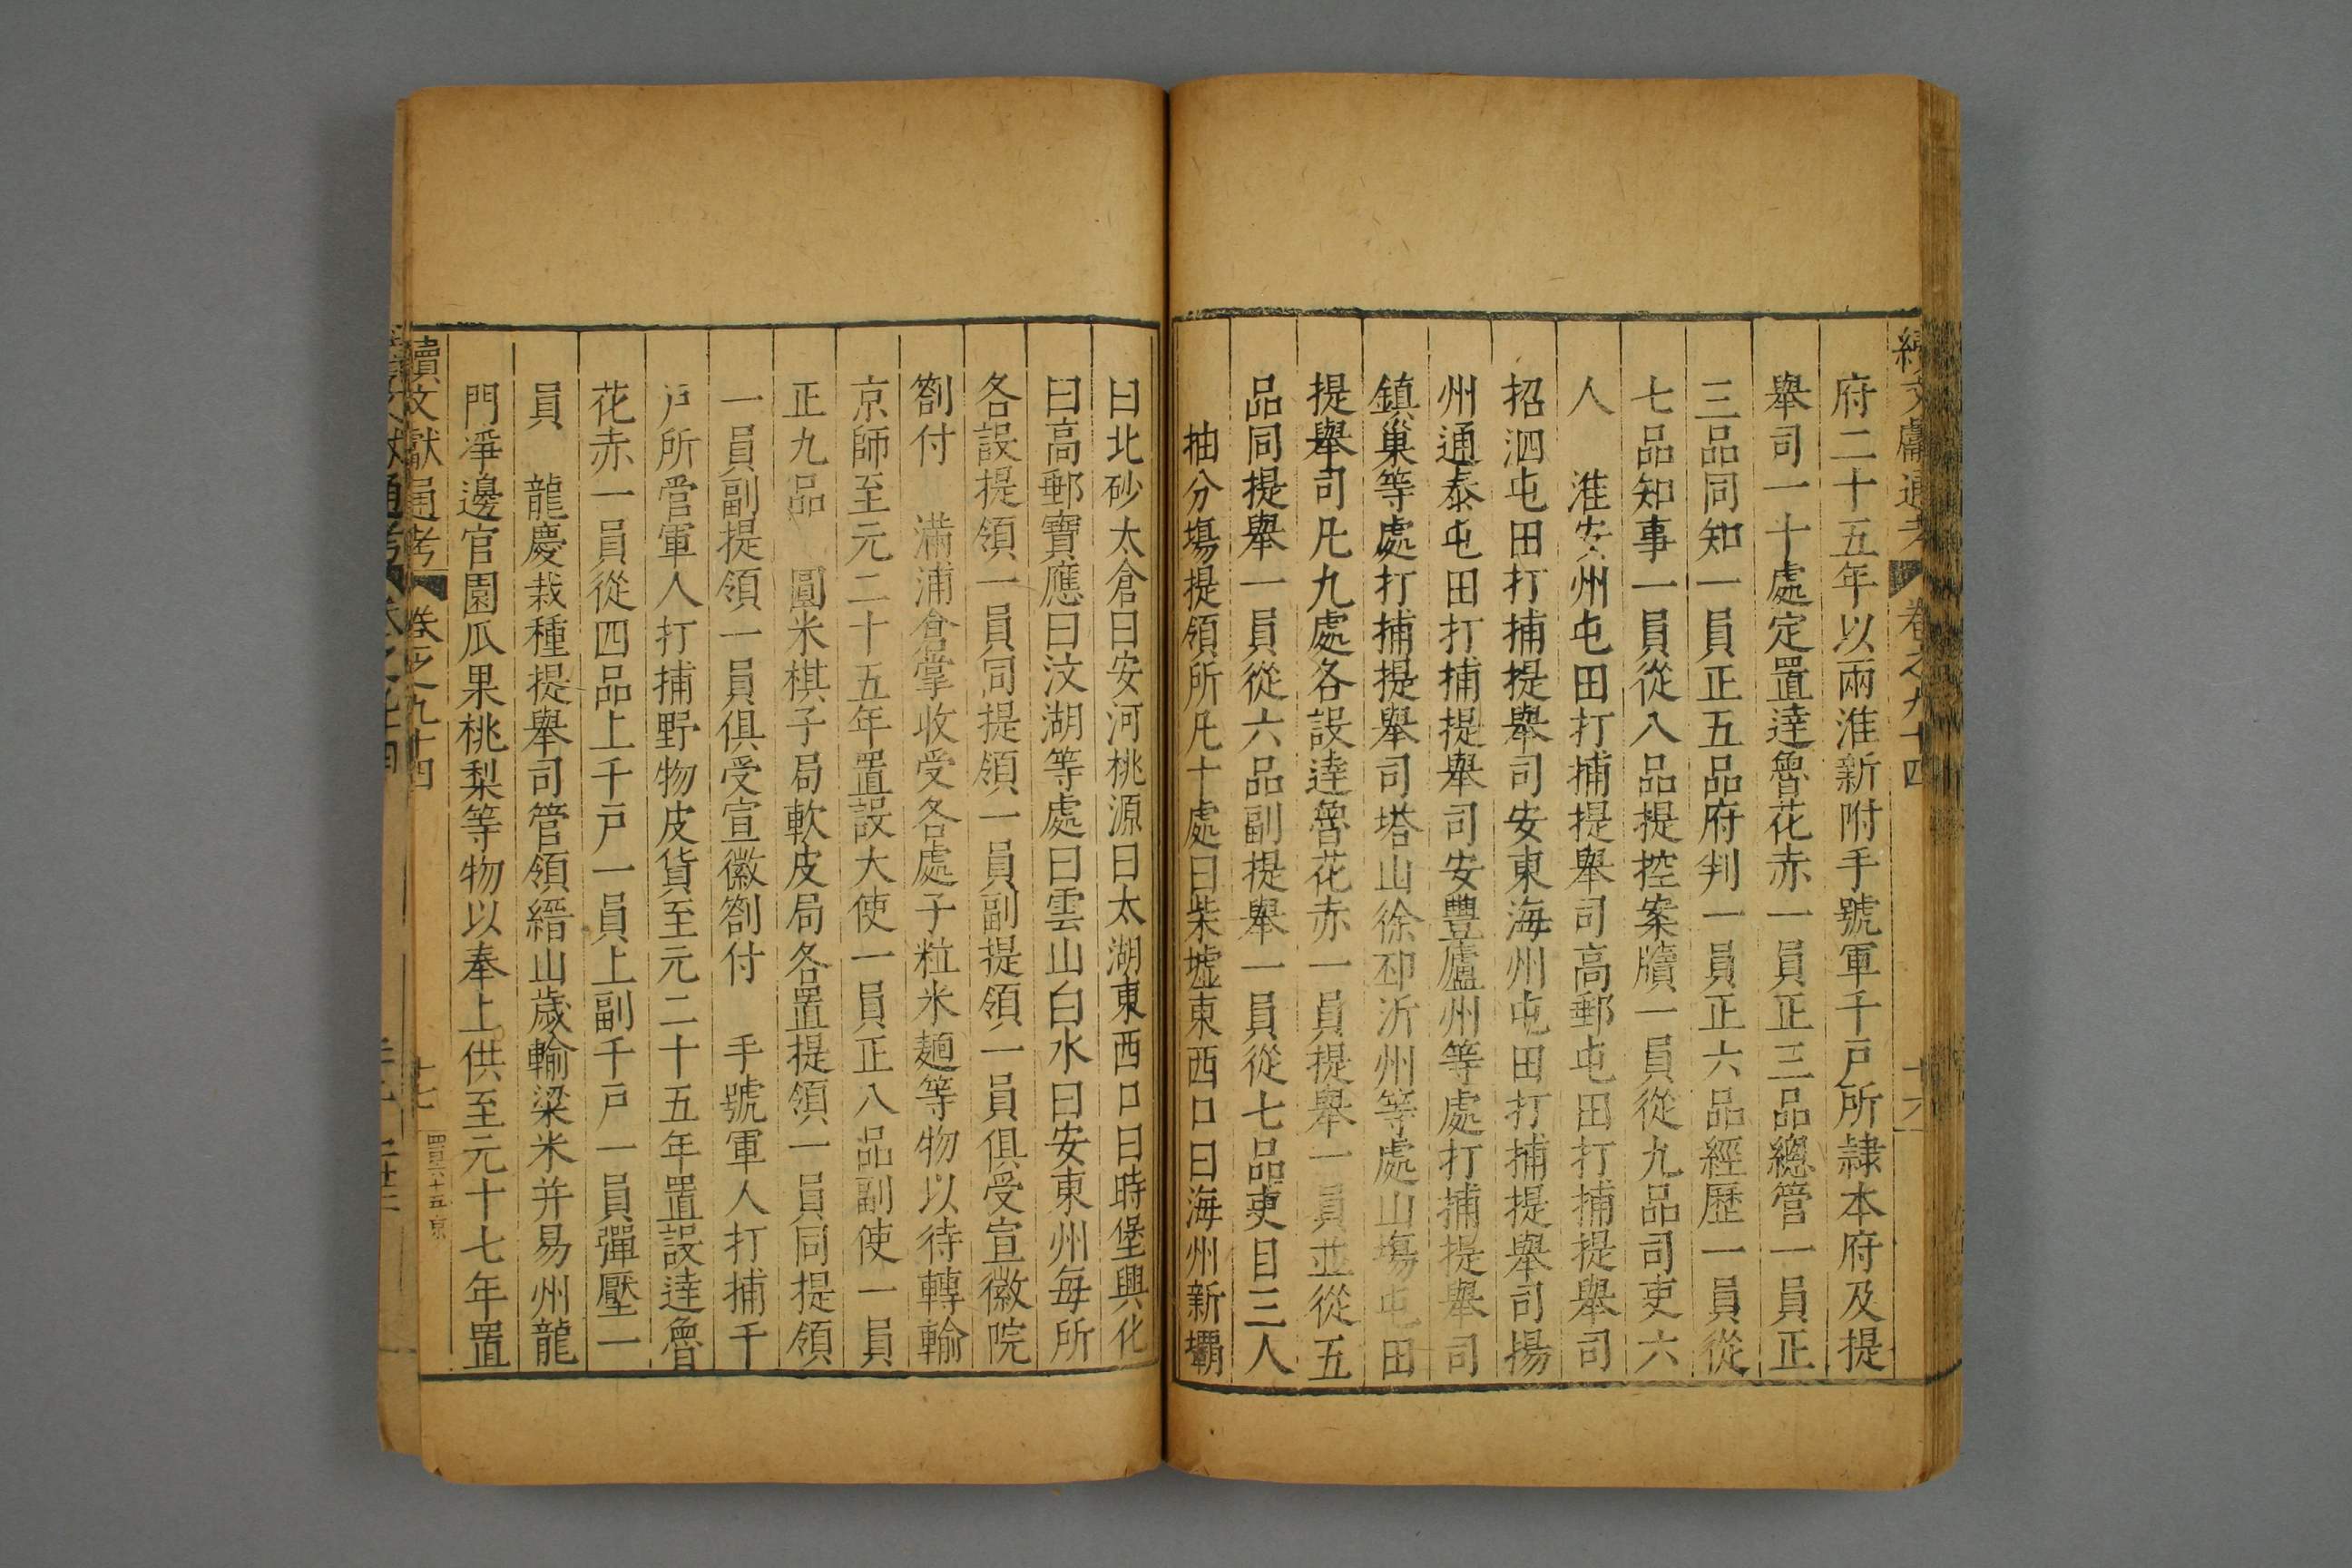 續文獻通考 卷之九十四 十六
府二十五年以兩淮新附手號軍千戸所隷本府及提
舉司一十處定置達魯花赤一員正三品總管一員正
三品同知一員正五品府判一員正六品經歷一員從
七品知事一員從八品提控案牘一員從九品司吏六
人 淮安州屯田打捕提舉司高郵屯田打捕提舉司
招泗屯田打捕提舉司安東海州屯田打捕提舉司揚
州通泰屯田打捕提舉司安豐廬州等處打捕提舉司
鎮巢等處打捕提舉司塔山徐邳沂州等處山場屯田
提舉司凡九處各設達魯花赤一員提舉一員並從五
品同提舉一員從六品副提舉一員從七品吏目三人
抽分場提領所凡十處曰柴墟東西口曰海州新壩
曰北砂太倉曰安河桃源曰太湖東西口曰時堡興化
曰高郵寶應曰汶湖等處曰雲山白水曰安東州每所
各設提領一員同提領一員副提領一員俱受宣徽院
劄付 滿浦倉掌收受各處子粒米麵等物以待轉輸
京師至元二十五年置設大使一員正八品副使一員
正九品 圓米棋子局軟皮局各置提領一員同提領
一員副提領一員俱受宣徽劄付 手號軍人打捕千
戸所管軍人打捕野物皮貨至元二十五年置設達魯
花赤一員從四品上千戸一員上副千戸一員彈壓一
員 龍慶栽種提舉司管領縉山歲輸粱米并易州龍
門淨邊官園瓜果桃梨等物以奉上供至元十七年置
續文獻通考 卷之九十四 十七